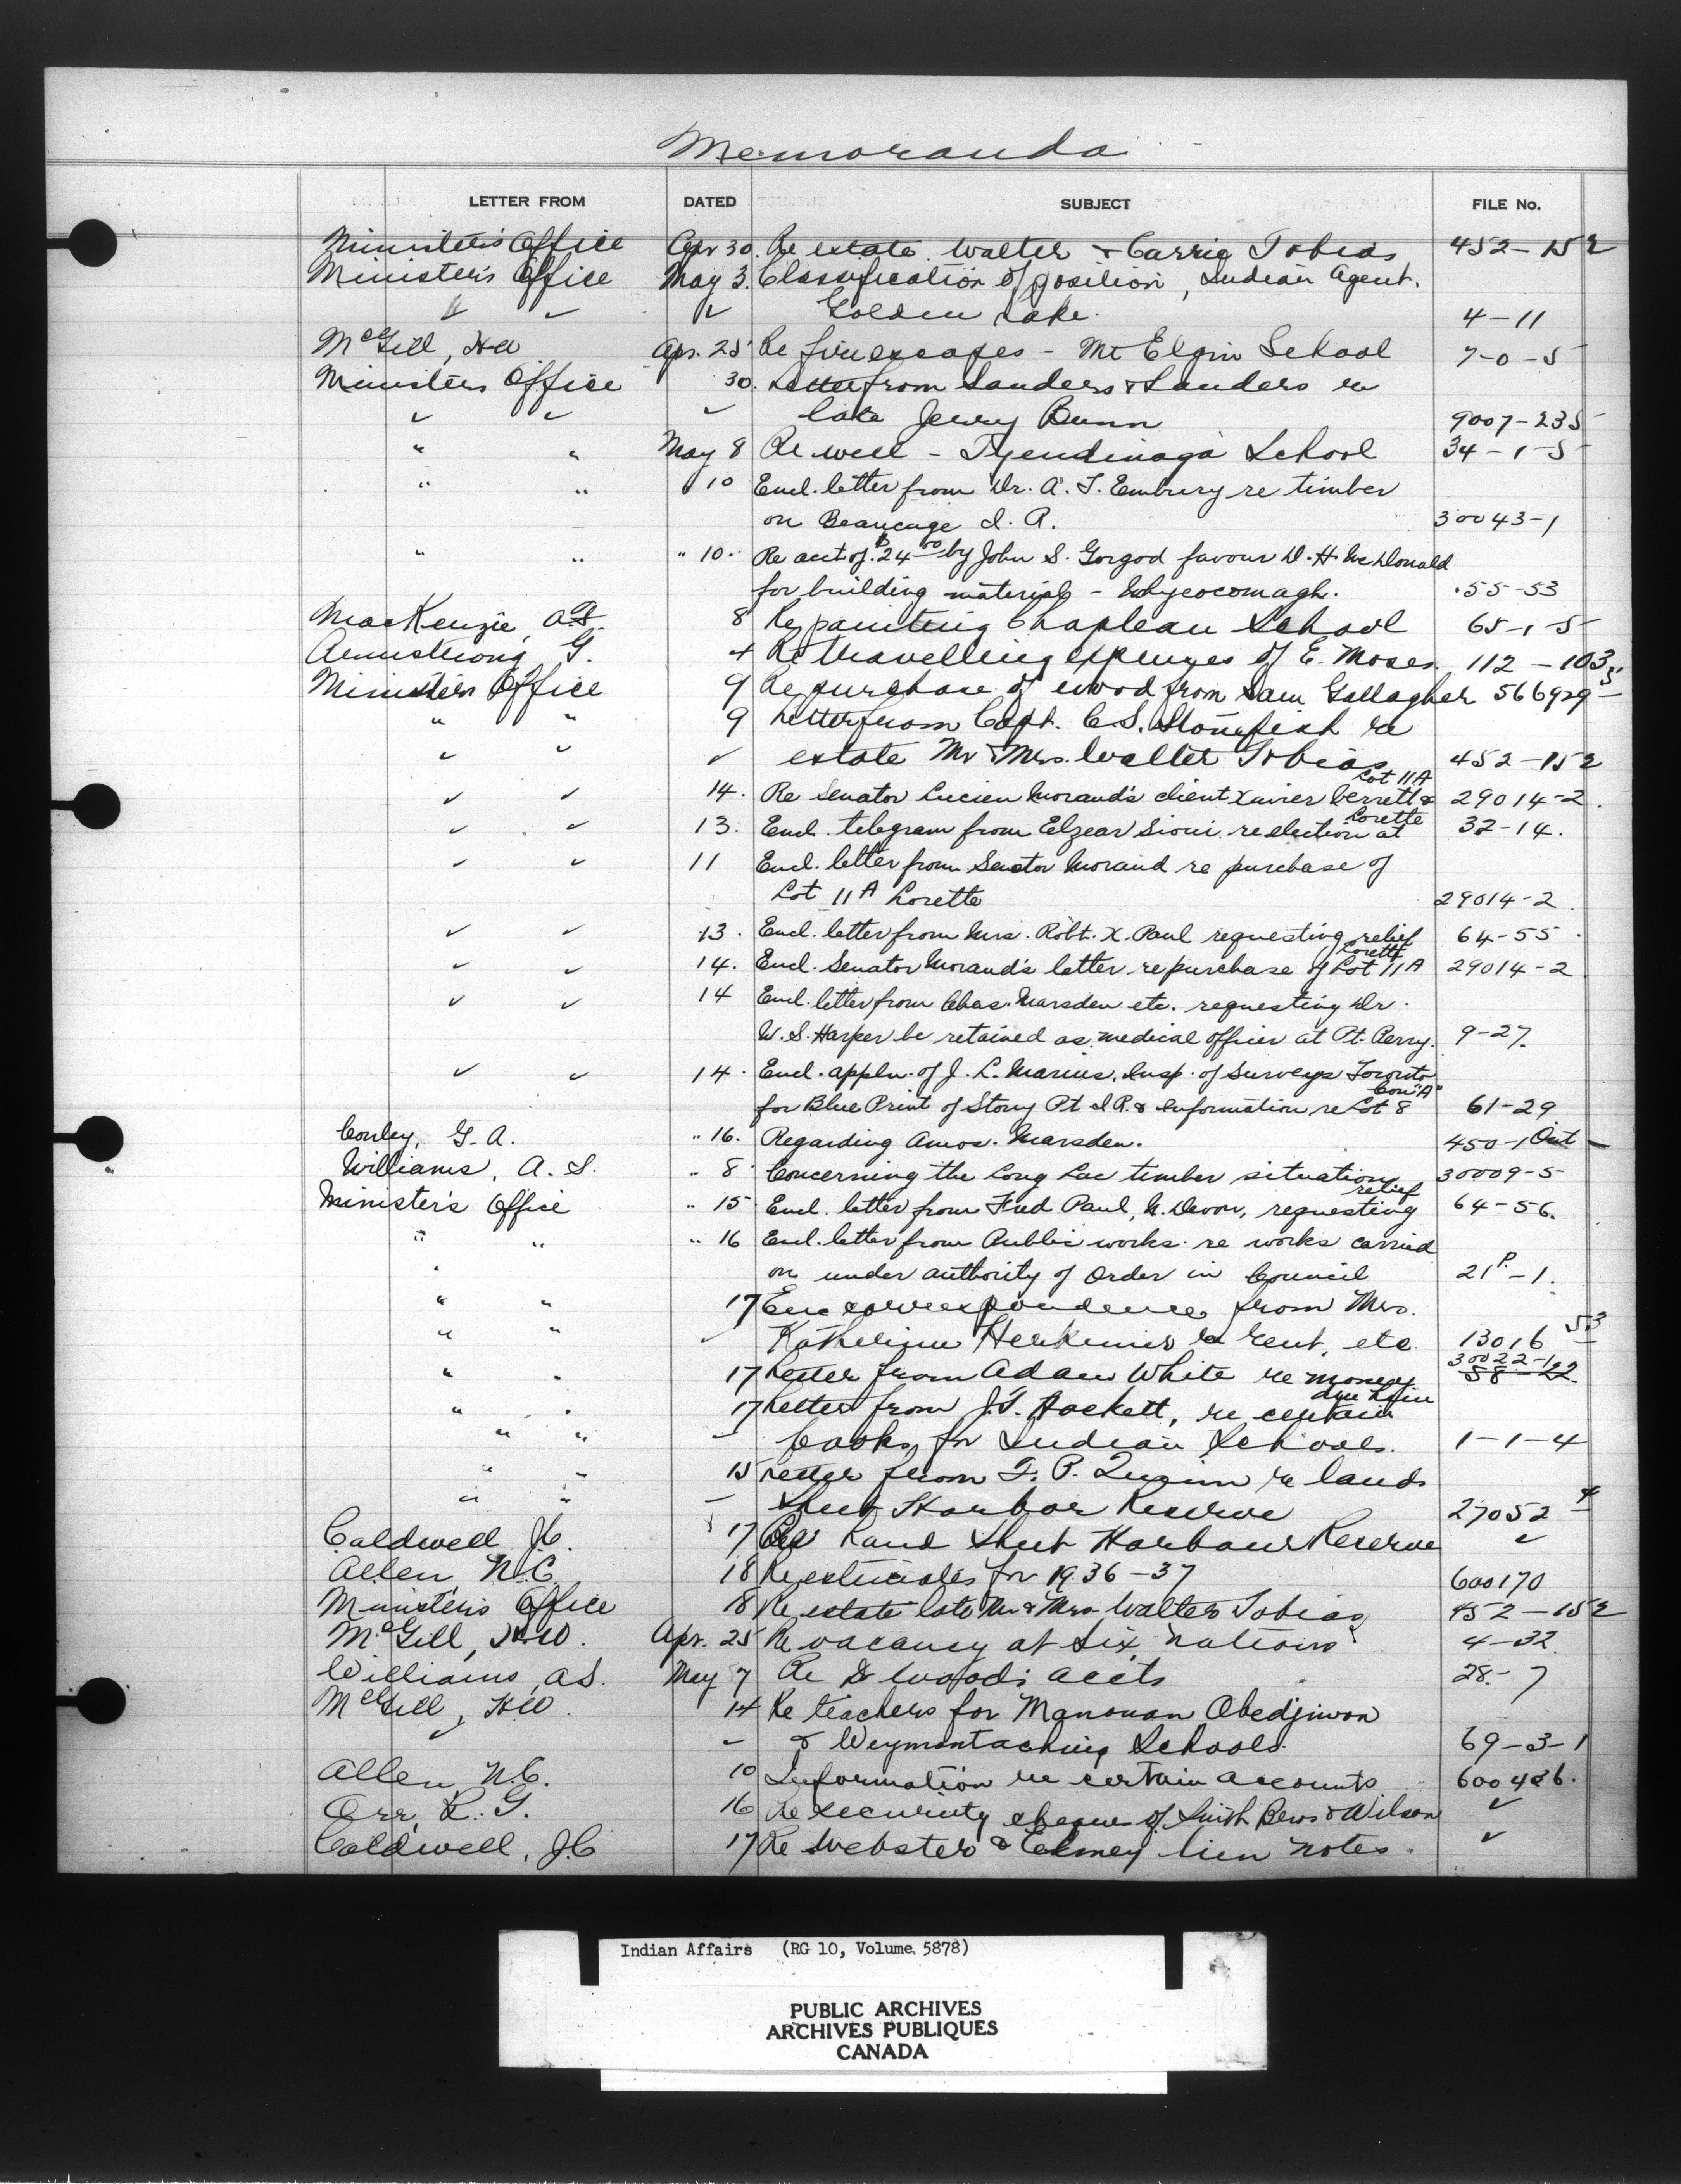 Memoranda
LETTER FROM DATED SUBJECT FILE No.
Minister's Office Apr 30. Re estate Walter & Carrie Tobias 452-152
Minister's Office May 3. Classification of position, Indian Agent.
✓ ✓ ✓ Golden Lake. 4-11
McGill, HW Apr. 25 Re fire escapes - Mt Elgin School 7-0-5
Ministers Office 30. Letter from Sanders & Sanders re
✓ ✓ ✓ late Jerry Bunn 9007-235
" " May 8 Re well - Tyendinaga School 34-1-5
" " " 10 Encl. letter from Dr. A. T. Embury re timber
on Beaucage I. R. 30043-1
" " " 10. Re acct of $24.00 by John S. Gorgod favour D. H. McDonald
for building material - Whycocomagh. 55-53
MacKenzie, A.F. 8 Re painting Chapleau School 65-1-5
Armstrong G. 4 Re travelling expenses of E. Moses. 112-103
Ministers Office 9 Re purchase of wood from Sam Gallagher 566929-5
" " 9 Letter from Capt. C.S. Stonefish re
✓ ✓ ✓ estate Mr & Mrs. Walter Tobias 452-152
✓ ✓ 14. Re Senator Lucien Morand's client Xavier & Lot 11A 29014-2.
✓ ✓ 13. Encl. telegram from Elzear Sioui re election at Lorette 32-14.
✓ ✓ 11 Encl. letter from Senator Morand re purchase of
Lot 11A Lorette 29014-2.
✓ ✓ 13. Encl. letter from Mrs. Robt. X. Paul requesting relief 64-55
✓ ✓ 14. Encl. Senator Morand's letter re purchase of Lot 11A Lorette 29014-2
✓ ✓ 14 Encl. letter from Chas. Marsden etc. requesting Dr.
W. S. Harper be retained as medical officer at Pt. Perry. 9-27.
✓ ✓ 14. Encl. appln. of J. L. Insp. of Surveys Toronto
for Blue Print of Stony Pt I.R. & information re Lot 8 Con "A" 61-29
Conley, G. A. " 16. Regarding Amos. Marsden. 450-1 Ont
Williams, A. S. " 8 Concerning the Long Lac timber situation 30009-5
Minister's Office " 15 Encl. letter from Fred Paul, N. Devon, requesting relief 64-56.
" " " 16 Encl. letter from Public works re works carried
" on under authority of Order in Council 21P-1.
" " 17 Enc correspondence from Mrs.
" " ✓ Katherine Herkimer re rent, etc. 13016-53
" " 17 Letter from Adam White re money due him 30022-122 58-22
" " 17 Letter from J.T. Hackett, re certain
" " books for Indian Schools. 1-1-4
" " 15 Letter from F. P. Quinn re lands
" " Sheet Harbor Reserve 27052-4
Caldwell J.C. 17 Re Land Sheet Harbour Reserve ✓
Allen N.C. 18 Re estimates for 1936-37 600170
Minister's Office 18 Re estate late Mr & Mrs Walter Tobias 452-152
McGill, H.W. Apr. 25 Re vacancy at Six Nations 4-32
Williams, A.S. May 7 Re Dr Woods accts 28-7
McGill, HW. 14 Re teachers for Manouan Obedjiwon
✓ ✓ & Weymontaching Schools 69-3-1
Allen N.C. 10 Information re certain accounts 600486.
Orr, R. G. 16 Re security cheques of Smith Bros & Wilson ✓
Caldwell, J.C 17 Re Webster & lien notes. ✓
Indian Affairs (RG 10, Volume 5878)
PUBLIC ARCHIVES
ARCHIVES PUBLIQUES
CANADA